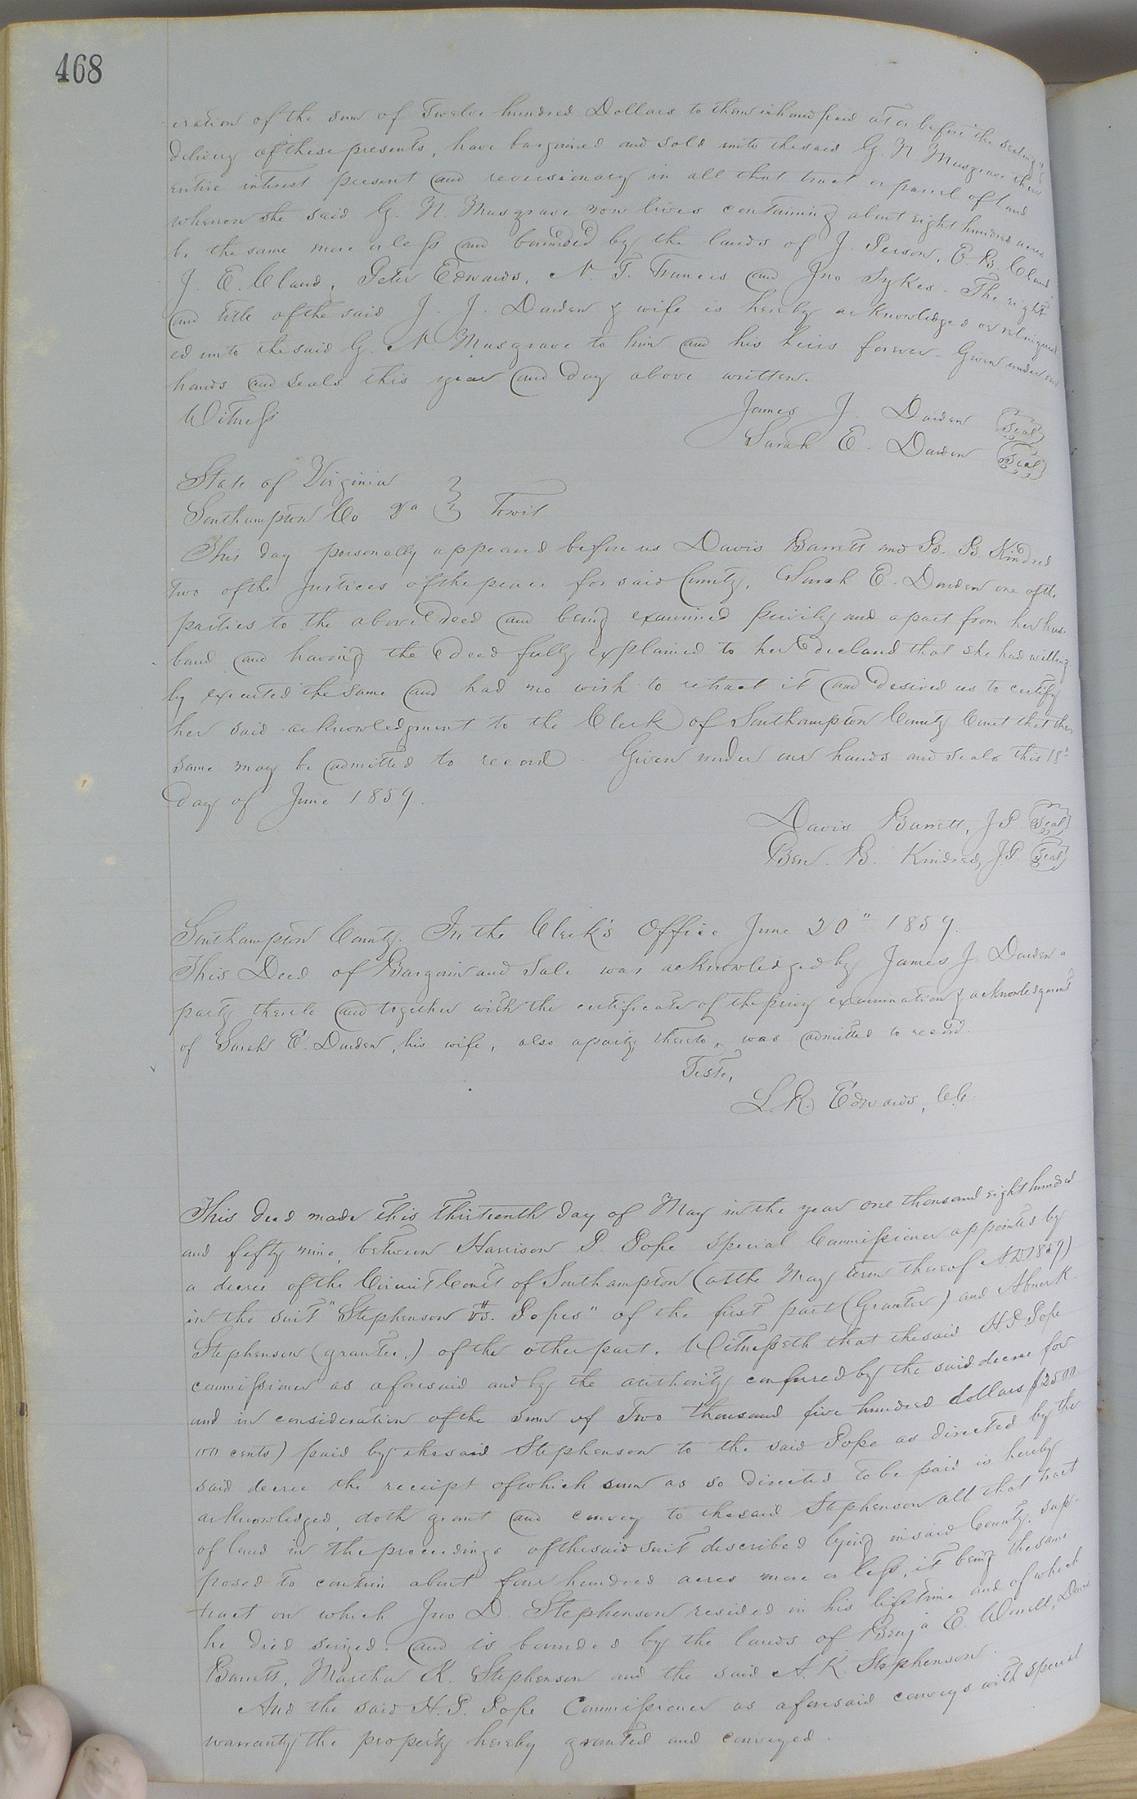 468
eration of the sum of Twelve hundred Dollars to them in hand paid at or before the sealing &
delivery of these presents, have bargained and sold unto the said G. N. Musgrave their
entire interest present and reversionary in all that tract or parcel of land
whereon the said G. N. Musgrave now lives containing about eight hundred acres
be the same more or less and bounded by the lands of J. Person, E. B. Claud
J. E. Claud, Peter Edwards, N. T. Francis and Jno Sykes. The right
and title of the said J. J. Darden & wife is hereby acknowledged or relinquish
ed unto the said G. N. Musgrave to him and his heirs forever. Given under our
hands and seals this year and day above written.
Witness
James J. Darden Seal
Sarah E. Darden Seal
State of Virginia
Southampton Co Towit
This day personally appeared before us Davis Barrett and B. B. Kindred
two of the Justices of the peace for said County, Sarah E. Darden one of the
parties to the above deed and being examined privily and apart from her hus-
band and having the deed fully explained to her declared that she had willing
ly executed the same and had no wish to retract it and desired us to certify
her said acknowledgment to the Clerk of Southampton County Court that the
same may be admitted to record. Given under our hands and seals this 18"
day of June 1859.
Davis Barrett, JP Seal
Ben. B. Kindred, JP Seal
Southampton County. In the Clerk's Office June 20" 1859.
This Deed of Bargain and Sale was acknowledged by James J. Darden a
party thereto and together with the certificate of the privy examination & acknowledgment
of Sarah E. Darden, his wife, also a party thereto, was admitted to record.
Teste,
L. R. Edwards, C.C.
This deed made this thirteenth day of May in the year one thousand eight hundred
and fifty nine, between Harrison P. Pope Special Commissioner appointed by
a decree of the Circuit Court of Southampton (at the May term thereof AD 1859)
in the suit "Stephenson vs. Popes" of the first part (Grantor) and Abner K.
Stephenson (grantee,) of the other part. Witnesseth that the said H P Pope
commissioner as aforesaid and by the authority conferred by the said decree for
and in consideration of the sum of Two thousand five hundred dollars ($2500
00 cents) paid by the said Stephenson to the said Pope as directed by the
said decree the receipt of which sum as so directed to be paid is hereby
acknowledged, doth grant and convey to the said Stephenson all that tract
of land in the proceedings of the said suit described lying in said County, sup-
posed to contain about four hundred acres more or less, it being the same
tract on which Jno D. Stephenson resided in his lifetime and of which
he died seized. and is bounded by the lands of Benja E. Worrell, Davis
Barrett, Martha K. Stephenson and the said A. K. Stephenson.
And the said H. P. Pope Commissioner as aforesaid conveys with special
warranty the property hereby granted and conveyed.